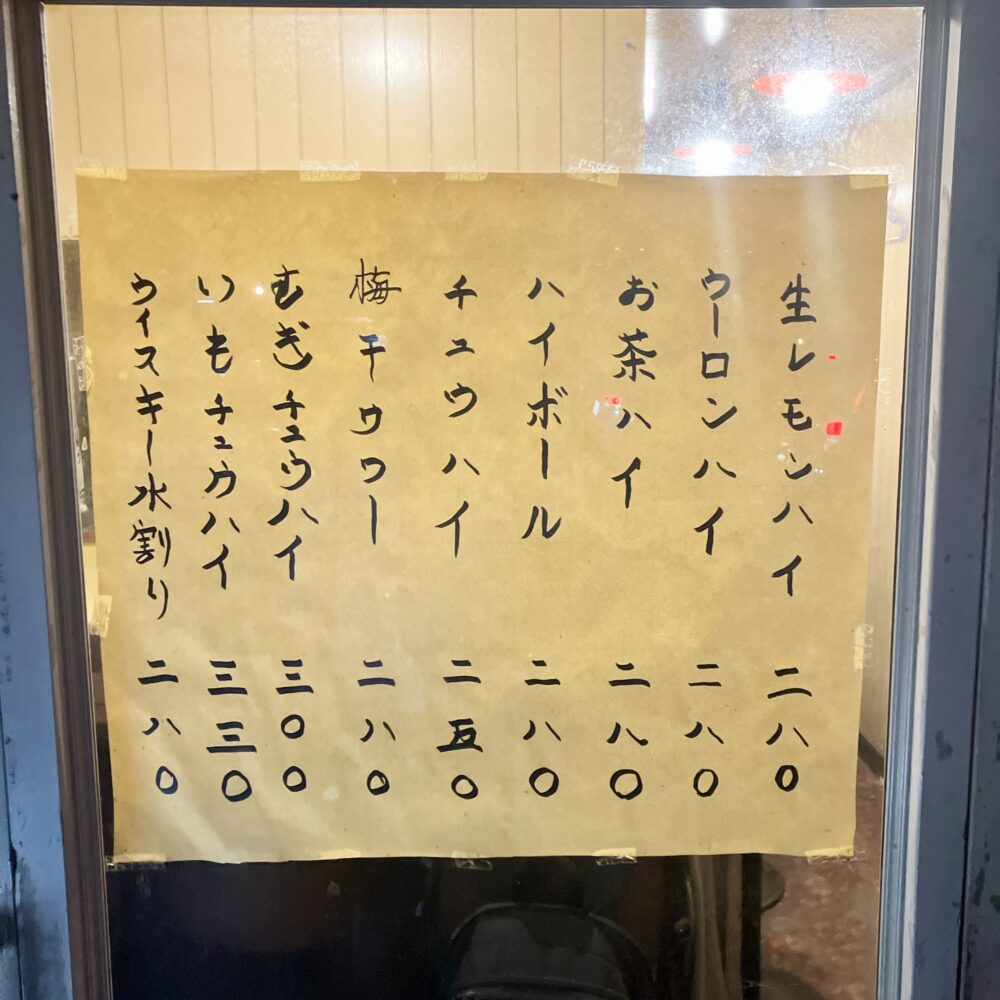 生レモンハイ 二八〇
ウーロンハイ 二八〇
お茶ハイ 二八〇
ハイボール 二八〇
チュウハイ 二五〇
梅干サワー 二八〇
むぎチュウハイ 三〇〇
いもチュウハイ 三三〇
ウィスキー水割り 二八〇